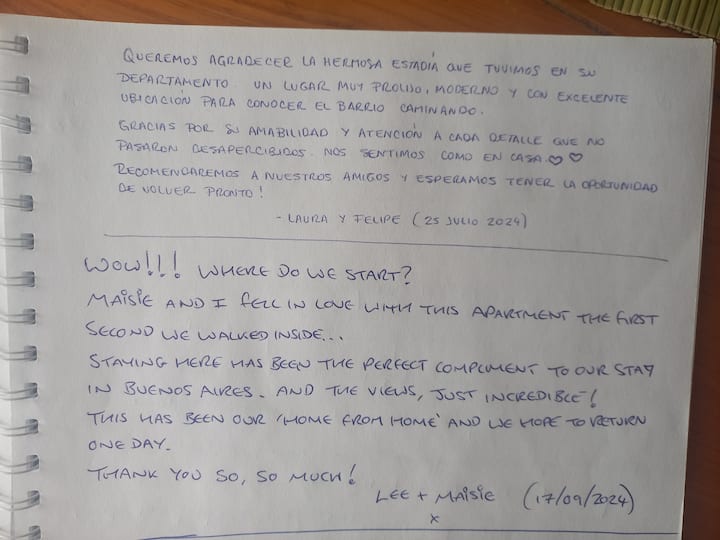 QUEREMOS AGRADECER LA HERMOSA ESTADÍA QUE TUVIMOS EN SU
DEPARTAMENTO. UN LUGAR MUY PROLIJO, MODERNO Y CON EXCELENTE
UBICACIÓN PARA CONOCER EL BARRIO CAMINANDO.
GRACIAS POR SU AMABILIDAD Y ATENCIÓN A CADA DETALLE QUE NO
PASARON DESAPERCIBIDOS. NOS SENTIMOS COMO EN CASA ♡♡
RECOMENDAREMOS A NUESTROS AMIGOS Y ESPERAMOS TENER LA OPORTUNIDAD
DE VOLVER PRONTO!
- LAURA Y FELIPE (25 JULIO 2024)
WOW!!! WHERE DO WE START?
MAISIE AND I FELL IN LOVE WITH THIS APARTMENT THE FIRST
SECOND WE WALKED INSIDE...
STAYING HERE HAS BEEN THE PERFECT COMPLIMENT TO OUR STAY
IN BUENOS AIRES. AND THE VIEWS, JUST INCREDIBLE!
THIS HAS BEEN OUR 'HOME FROM HOME' AND WE HOPE TO RETURN
ONE DAY.
THANK YOU SO, SO MUCH!
LEE + MAISIE (17/09/2024)
x